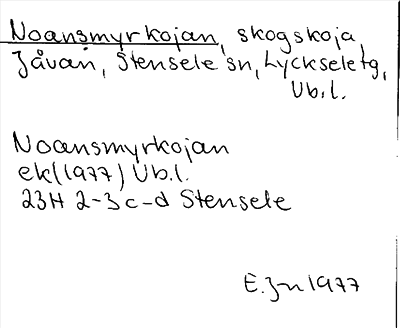 Noansmyrkojan, skogskoja
Jåvan, Stensele sn, Lycksele tg,
Vb.l.
Noansmyrkojan
ek (1977) Vb.l.
23H 2-3c-d Stensele
E.Jn 1977